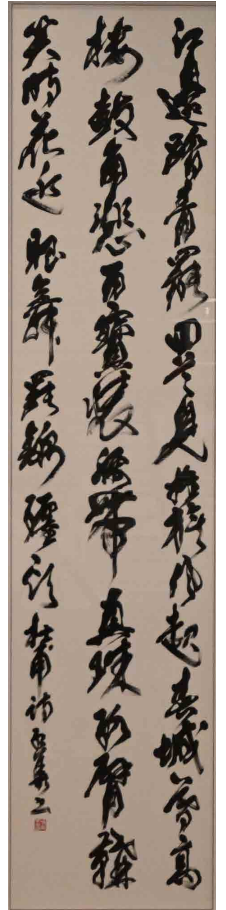 江邊踏青罷回首見旌旗風起春城暮高
樓鼓角悲百寶裝腰帶真珠絡臂韝
笑時花近眼舞罷錦纏頭杜甫詩